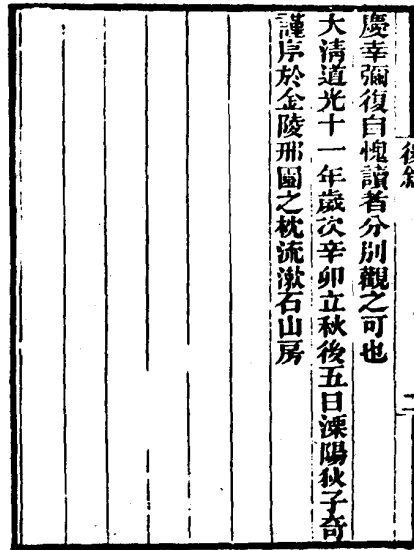 後敘
二
慶幸彌復自愧讀者分別觀之可也
大淸道光十一年歲次辛卯立秋後五日溧陽狄子奇
謹序於金陵邢園之枕流漱石山房